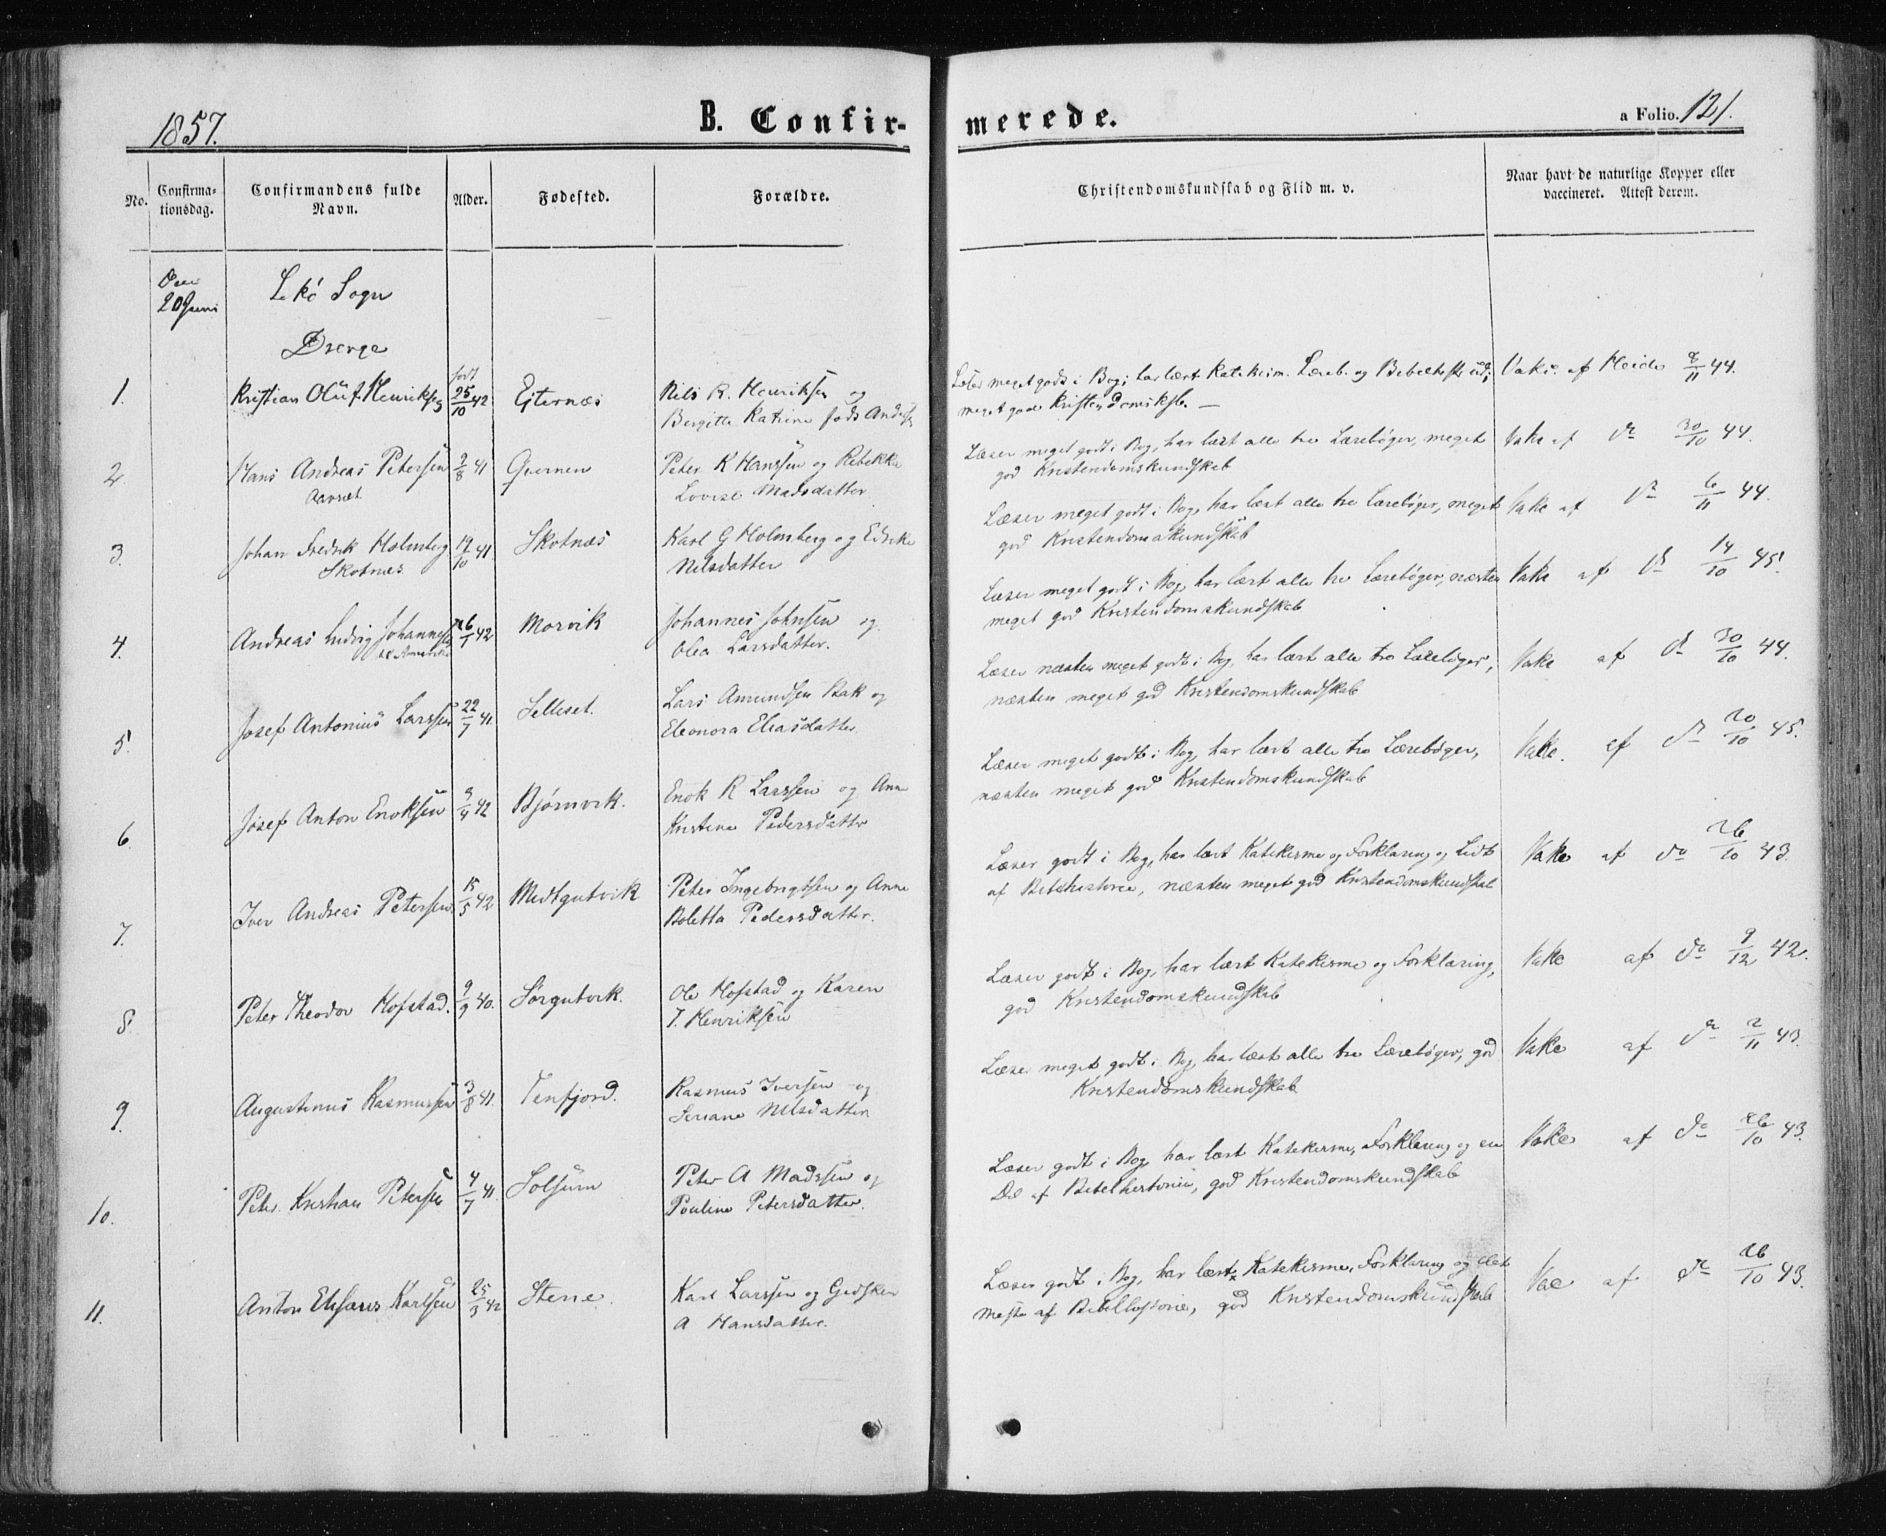 1857.
B. Confir-
merede.
a Folio. 121.
No.
Confirma-
tionsdag.
Confirmandens fulde
Navn.
Alder.
Fødested.
Forældre.
Christendomskundskab og Flid m. v.
Naar havt de naturlige Kopper eller
vaccineret. Attest derom.
20 Juni
Lekø Sogn
Drenge
1.
Kristian Oluf Henriksen
født 25/10 42
Nils R. Henriksen og
Bergitte Katrine
meget god Kristendomsksb. —
Vake. af Heide 8/11 44.
2.
Hans Andreas Petersen
2/8 41
Gurnen
Peter K Hanssen og Rebekka
Lovise Madsdatter
Læser meget godt i Bog, har lært alle tre Lærebøger, meget
god Kristendomskundskab
Vake af do 30/10 44.
3.
Johan Fredrik Holmberg
Skotnes.
19/10 41.
Skotnæs
Karl G Holmberg og
Nilsdatter
Læser meget godt i Bog, har lært alle tre Lærebøger, meget
god Kristendomskundskab
Vake af do 6/11 44.
4.
Andreas Ludvig Johannessen
26/1 42
Morvik
Johannes Johnsen og
Olea Larsdatter.
Læser meget godt i Bog, har lært alle tre Lærebøger, næsten
meget god Kristendomskundskab
Vake af do 14/10 45.
5.
Josef Antonius Larssen
22/7 41
Selleset.
Lars Amundsen Bak og
Eleonora Eliasdatter
Læser næsten meget godt i Bog, har lært alle tre Lærebøger,
næsten meget god Kristendomskundskab
Vake af do 30/10 44.
6.
Josef Anton Enoksen
42
Bjørnvik.
Enok R Larssen og Ane
Kristine Pedersdatter
Læser meget godt i Bog, har lært alle tre Lærebøger,
næsten meget god Kristendomskundskab
Vake. af do 20/10 45.
7.
Iver Andreas Petersen
15/5 42
Medtgutvik
Peter Ingebrigtsen og Anne
Boletta Pedersdatter.
Læser godt i Bog, har lært Katekisme og Forklaring og Lidt
af Bibelhistorie, næsten meget god Kristendomskundskab
Vake af do 26/10 43.
8.
Peter Theodor Hofstad.
9/9 40.
Sørgutvik.
Ole Hofstad og Karen
J. Henriksen
Læser godt i Bog, har lært Katekisme og Forklaring,
god Kristendomskundskab
Vake af do 9/12 42.
9.
Augustinus Rasmussen
3/8 41.
Tenfjord.
Rasmus Iversen og
Seriane Nilsdatter
Læser meget godt i Bog, har lært alle tre Lærebøger, god
Kristendomskundskab
Vake af do 2/11 43.
10.
Peter Kristian Petersen
4/7 41.
Solsum
Peter A Madssen og
Pouline Petersdatter.
Læser godt i Bog, har lært Katekisme, Forklaring og en
Del af Bibelhistorien, god Kristendomskundskab
Vake af do 26/10 43.
11.
Anton Elisæus Karlsen
25/3 42
Stene.
Karl Larssen og Gidsken
A Hansdatter.
Læser godt i Bog, har lært Katekisme, Forklaring og det
meste af Bibelhistorie, god Kristendomskundskab
Vac af do 26/10 43.